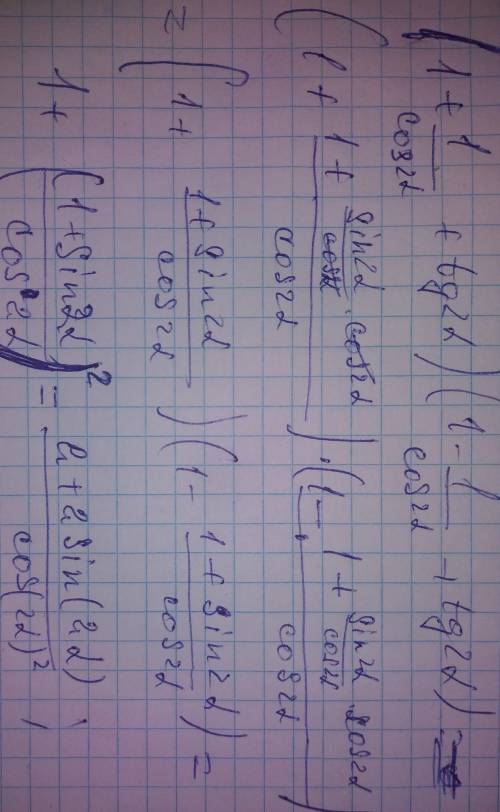 (1 + 1/cos2α + tg2α)(1 - 1/cos2α + tg2α) =
(1 + (1 + sin2α/cos2α · cos2α)/cos2α) · (1 - (1 + sin2α/cos2α · cos2α)/cos2α)
= (1 + (1 + sin2α)/cos2α)(1 - (1 + sin2α)/cos2α) =
1 + ((1 + sin2α)/cos2α)² = (2 + 2sin(2α))/cos(2α)²